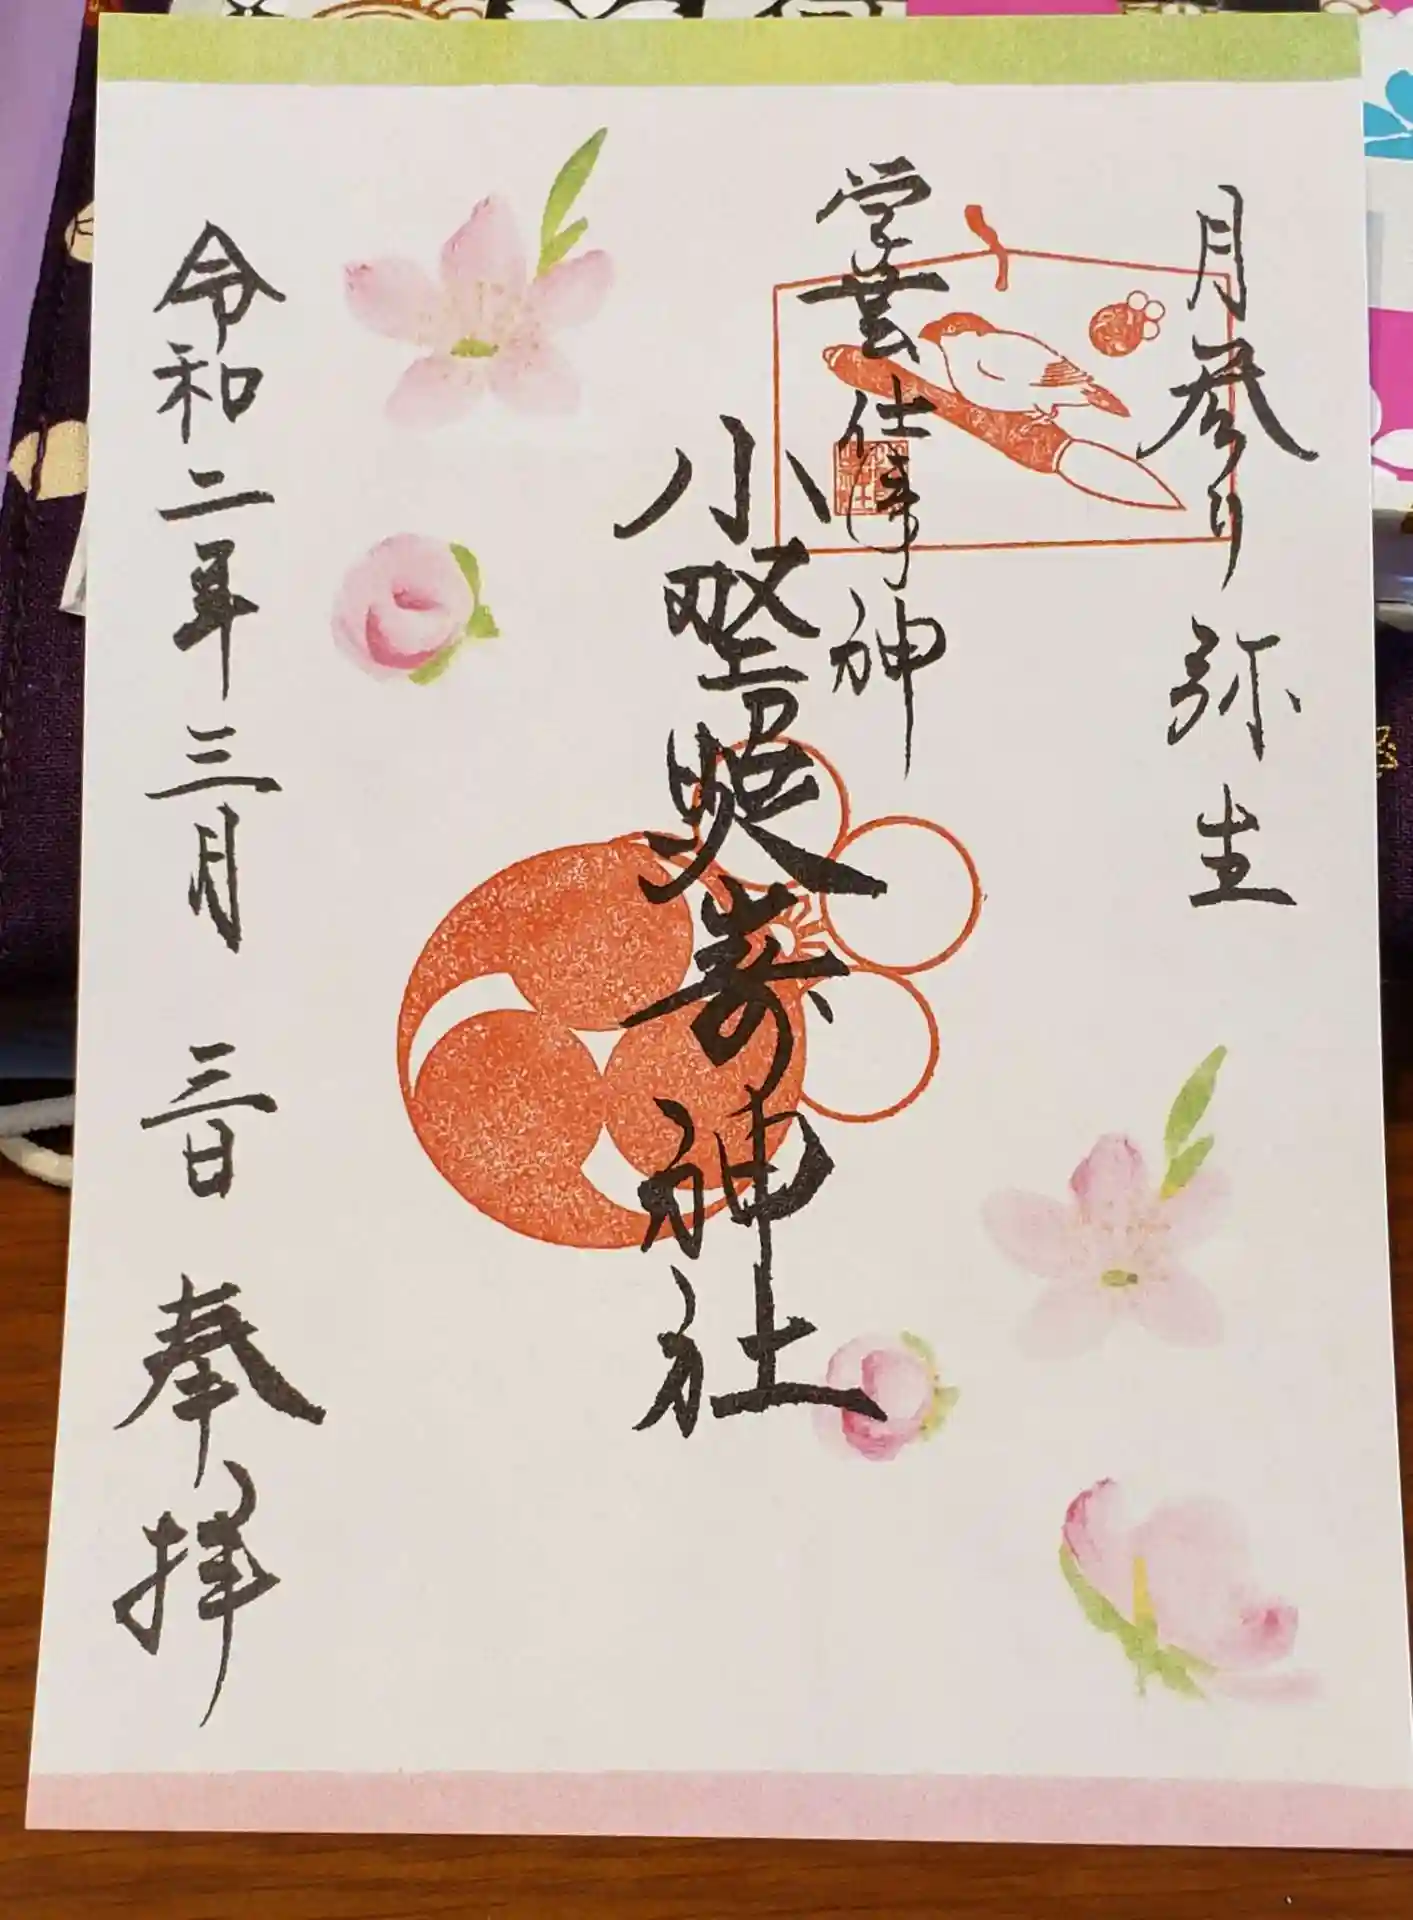 月参り 弥生
学芸 仕事 神
小野照崎神社
令和二年三月 三日 奉拝